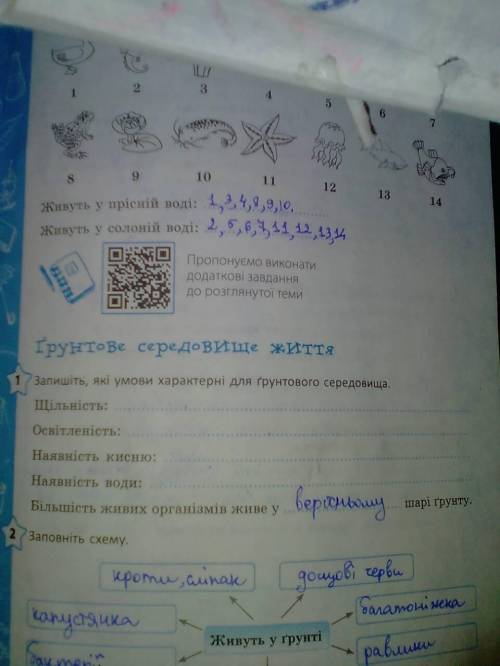 1 2 3 4 5 6 7
8 9 10 11 12 13 14
Живуть у прісній воді: 1,3,4,8,9,10.
Живуть у солоній воді: 2,5,6,7,11,12,13,14
Пропонуємо виконати
додаткові завдання
до розглянутої теми
Ґрунтове середовище життя
1 Запишіть, які умови характерні для ґрунтового середовища.
Щільність:
Освітленість:
Наявність кисню:
Наявність води:
Більшість живих організмів живе у верхньому шарі ґрунту.
2 Заповніть схему.
кроти, сліпак дощові черви
капустянка багатоніжка
Живуть у ґрунті
бактерії равлики